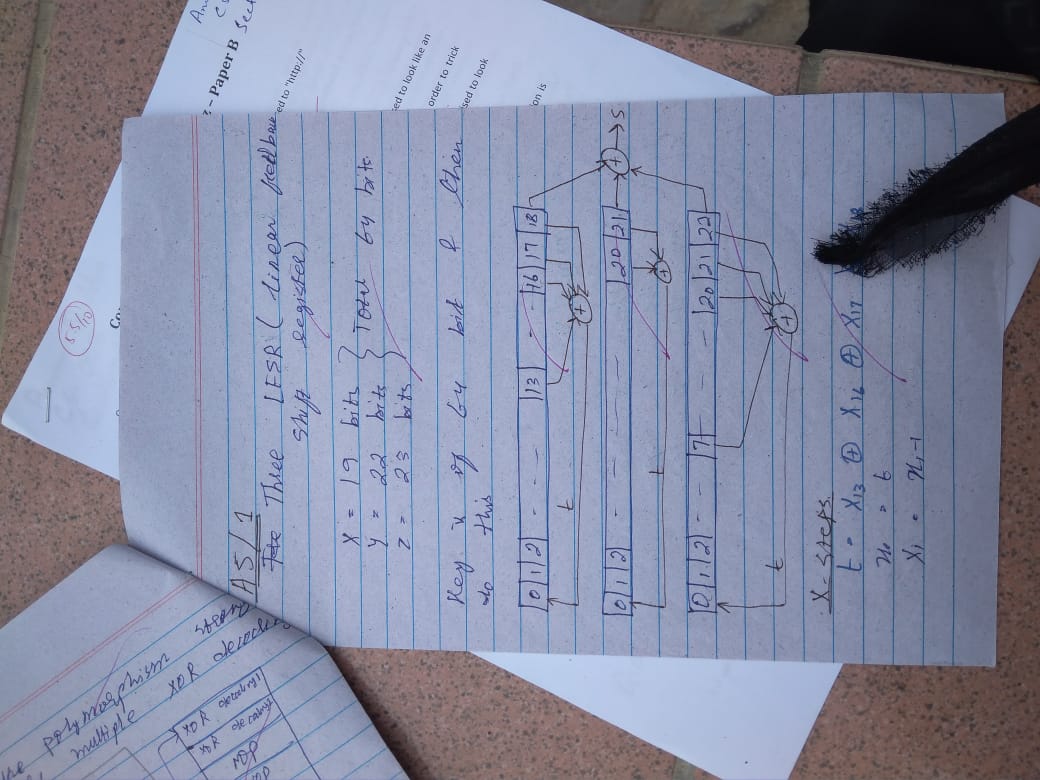 A5/1
Three LFSR (linear feedback
shift register)
X = 19 bits
Y = 22 bits
Z = 23 bits
Total 64 bits
Key is of 64 bit & then
to this
0 1 2 - - - 13 - - - 16 17 18
t
⊕
0 1 2 - - - - - 20 21 ⊕ → S
t
⊕
0 1 2 - - 7 - - - 20 21 22
t
⊕
X-steps
t = X13 ⊕ X16 ⊕ X17 ⊕
x0 = t
Xi = xi-1
- Paper B
Sect
ed to "http://"
sed to look like an
order to trick
sed to look
on is
polymorphism
multiple XOR
XOR decrypt
XOR decrypt
NOP